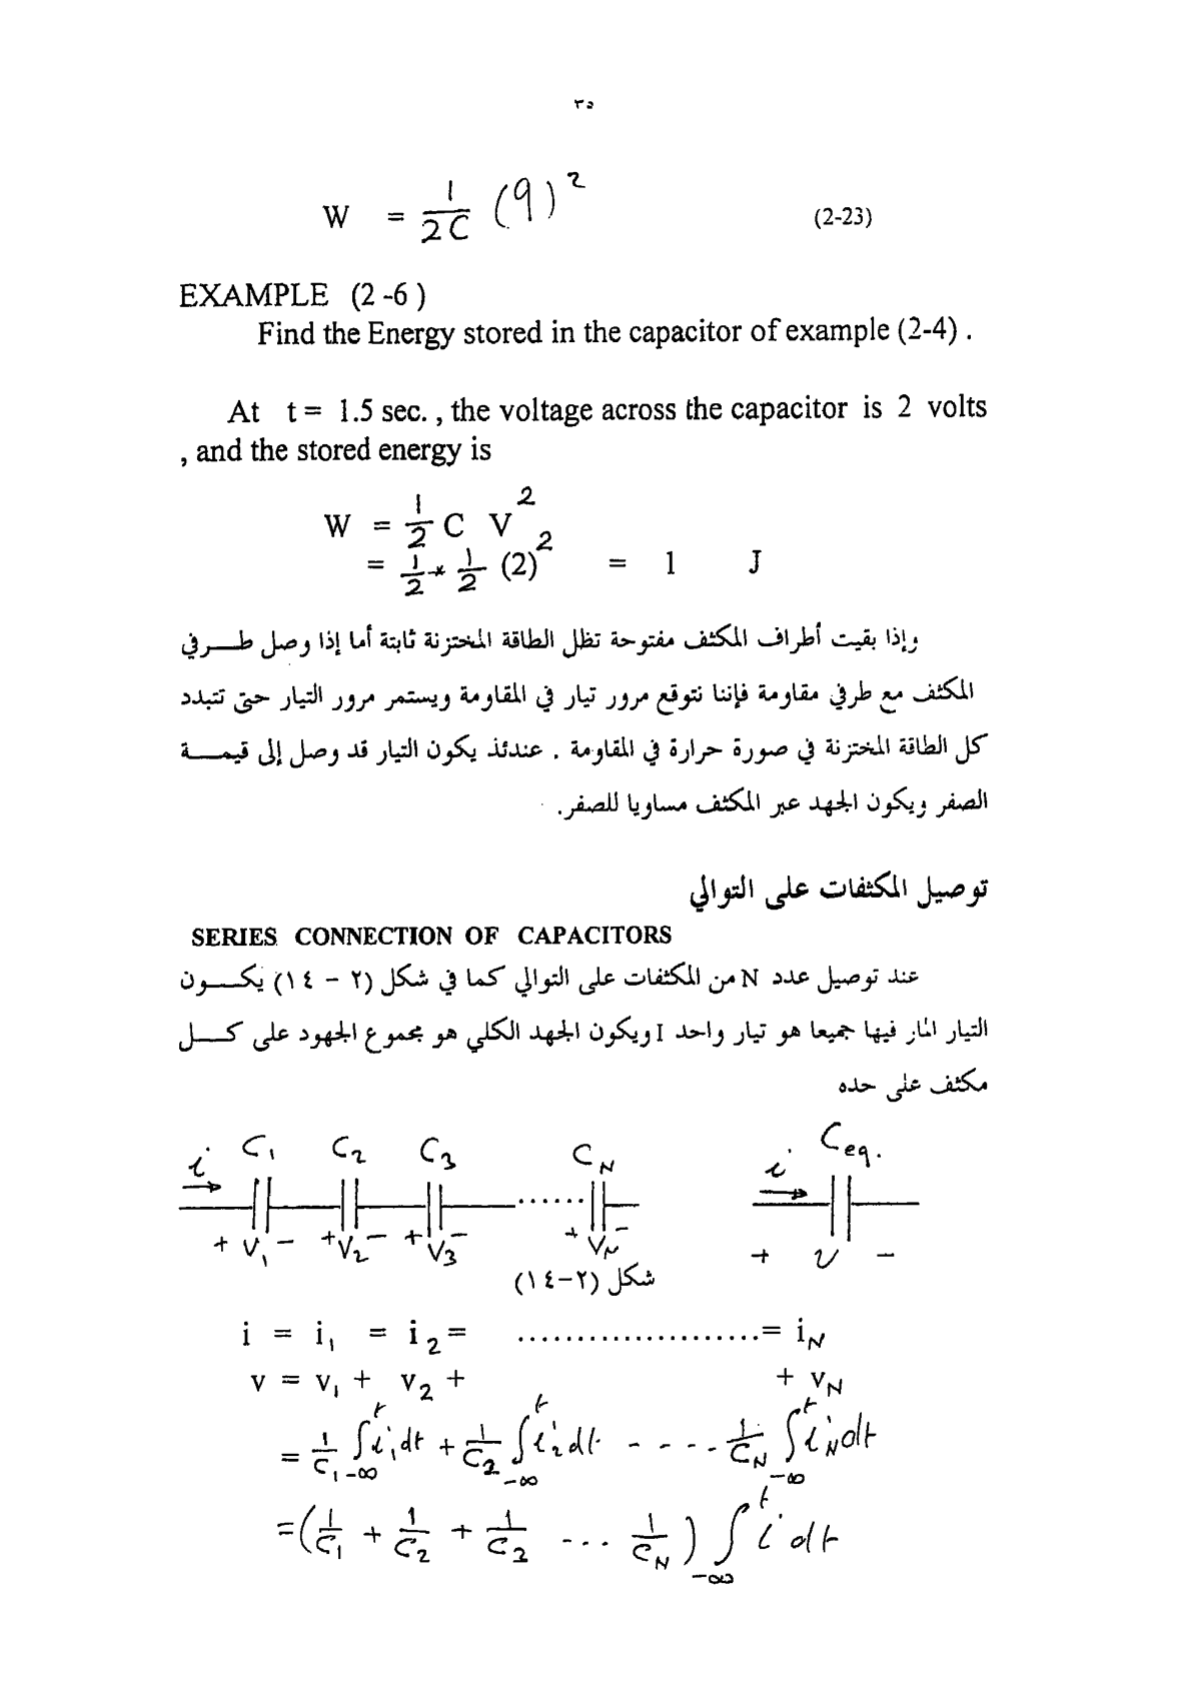 ٣٥
W = 1/2C (q)² (2-23)
EXAMPLE (2 -6 )
Find the Energy stored in the capacitor of example (2-4) .
At t = 1.5 sec. , the voltage across the capacitor is 2 volts
, and the stored energy is
W = 1/2 C V²
= 1/2 * 1/2 (2)² = 1 J
وإذا بقيت أطراف المكثف مفتوحة تظل الطاقة المختزنة ثابتة أما إذا وصل طـــرفي
المكثف مع طرفي مقاومة فإننا نتوقع مرور تيار في المقاومة ويستمر مرور التيار حتى تتبدد
كل الطاقة المختزنة في صورة حرارة في المقاومة . عندئذ يكون التيار قد وصل إلى قيمـــة
الصفر ويكون الجهد عبر المكثف مساويا للصفر.
توصيل المكثفات على التوالي
SERIES CONNECTION OF CAPACITORS
عند توصيل عدد N من المكثفات على التوالي كما في شكل (٢ – ١٤) يكـــون
التيار المار فيها جميعا هو تيار واحد I ويكون الجهد الكلي هو مجموع الجهود على كـــل
مكثف على حده
i C₁ C₂ C₃ C_N i C_eq.
+ V₁ − + V₂ − + V₃ − ...... + V_N − + v −
شكل (٢-١٤)
i = i₁ = i₂ = ......................= i_N
v = v₁ + v₂ + + v_N
= 1/C₁ ∫_{-∞}^{t} i₁dt + 1/C₂ ∫_{-∞}^{t} i₂dt - - - - - 1/C_N ∫_{-∞}^{t} i_N dt
=(1/C₁ + 1/C₂ + 1/C₃ ... 1/C_N) ∫_{-∞}^{t} i dt